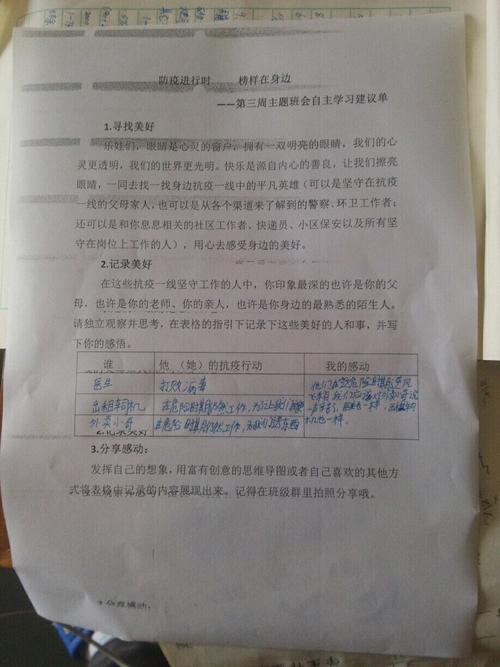 防疫进行时 榜样在身边
——第三周主题班会自主学习建议单
1.寻找美好
乐娃们，眼睛是心灵的窗户，拥有一双明亮的眼睛，我们的心
灵更透明，我们的世界更光明。快乐是源自内心的善良，让我们擦亮
眼睛，一同去找一找身边抗疫一线中的平凡英雄（可以是坚守在抗疫
一线的父母家人，也可以是从各个渠道来了解到的警察、环卫工作者；
还可以是和你息息相关的社区工作者、快递员、小区保安以及所有坚
守在岗位上工作的人），用心去感受身边的美好。
2.记录美好
在这些抗疫一线坚守工作的人中，你印象最深的也许是你的父
母，也许是你的老师、你的亲人，也许是你身边的最熟悉的陌生人。
请独立观察并思考，在表格的指引下记录下这些美好的人和事，并写
下你的感悟。
谁 他（她）的抗疫行动 我的感动
医生 打败病毒
出租车司机 在危险时期仍然工作，为了让我们
外卖小哥 在危险时期仍然工作，为我们送东西
3.分享感动：
发挥自己的想象，用富有创意的思维导图或者自己喜欢的其他方
式将表格中记录的内容展现出来。记得在班级群里拍照分享哦。